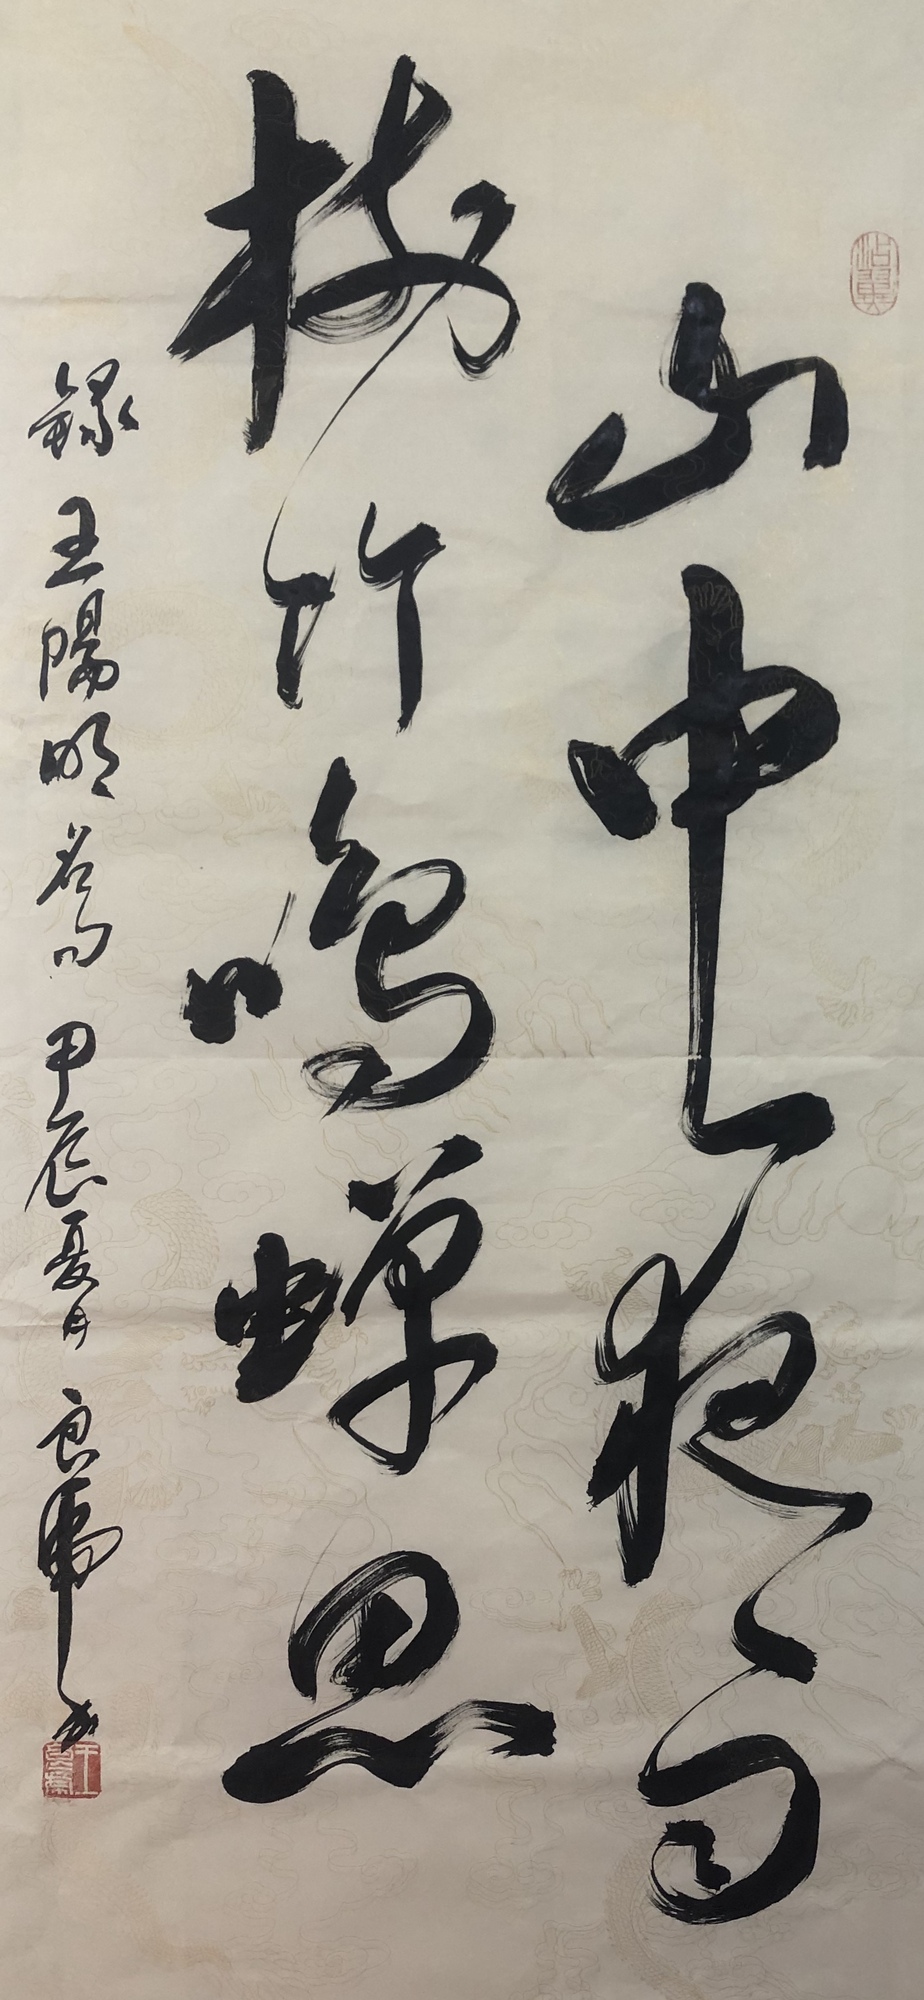 山中一夜雨
樹竹鳴蟬思
錄王陽明名句 甲辰夏月 良書